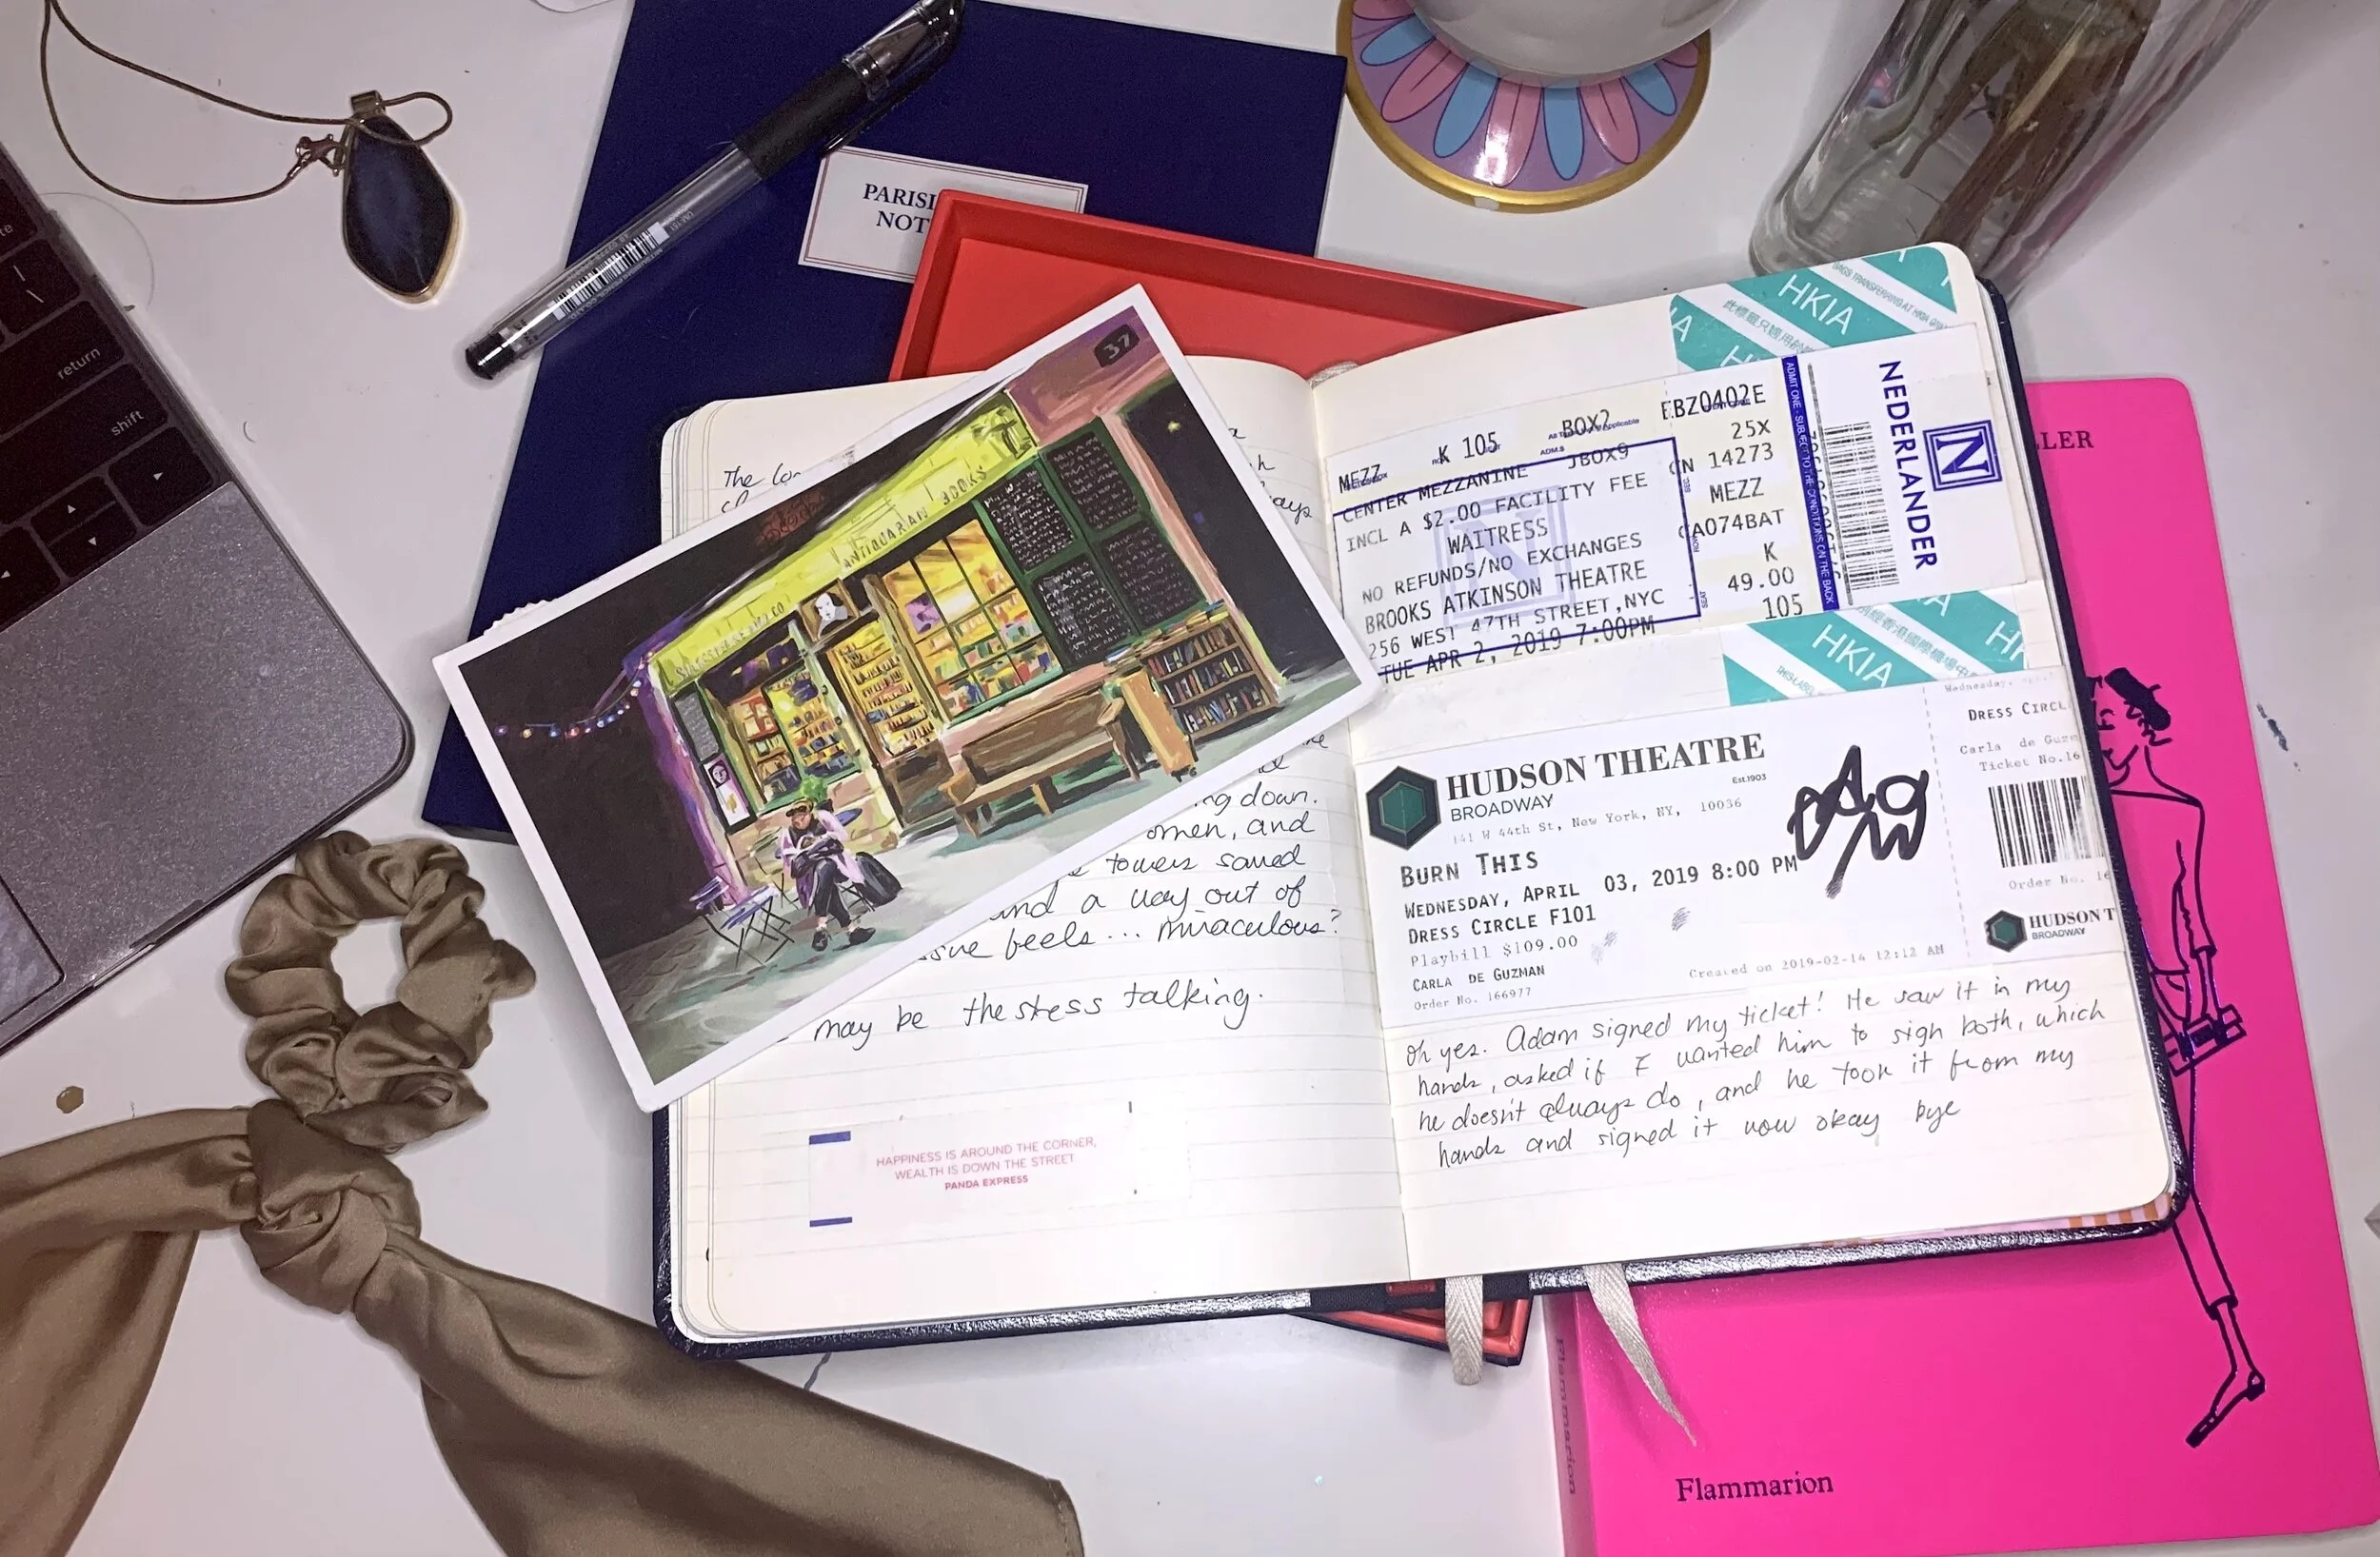 return
shift
PARISI
NOT
37
ANTIQUARIAN BOOKS
The
may be the stress talking.
ng down.
omen, and
towers saved
and a way out of
feels... miraculous?
HAPPINESS IS AROUND THE CORNER,
WEALTH IS DOWN THE STREET
PANDA EXPRESS
HKIA
MEZZ K 105 BOX2 EBZ0402E
CENTER MEZZANINE JBOX9 25X
INCL A $2.00 FACILITY FEE CN 14273
WAITRESS MEZZ
NO REFUNDS/NO EXCHANGES CA074BAT
BROOKS ATKINSON THEATRE K
256 WEST 47TH STREET,NYC 49.00
TUE APR 2, 2019 7:00PM 105
ADMIT ONE - SUBJECT TO THE CONDITIONS ON THE BACK
NEDERLANDER
N
HKIA
HUDSON THEATRE
Est.1903
BROADWAY
141 W 44th St, New York, NY, 10036
BURN THIS
WEDNESDAY, APRIL 03, 2019 8:00 PM
DRESS CIRCLE F101
Playbill $109.00
CARLA DE GUZMAN
Order No. 166977
Created on 2019-02-14 12:12 AM
Wednesday,
DRESS CIRCL
Carla de Guzm
Ticket No.16
Order No. 16
HUDSON T
BROADWAY
Oh yes. Adam signed my ticket! He saw it in my
hands, asked if I wanted him to sign both, which
he doesn't always do, and he took it from my
hands and signed it now okay bye
LLER
Flammarion
Flammarion